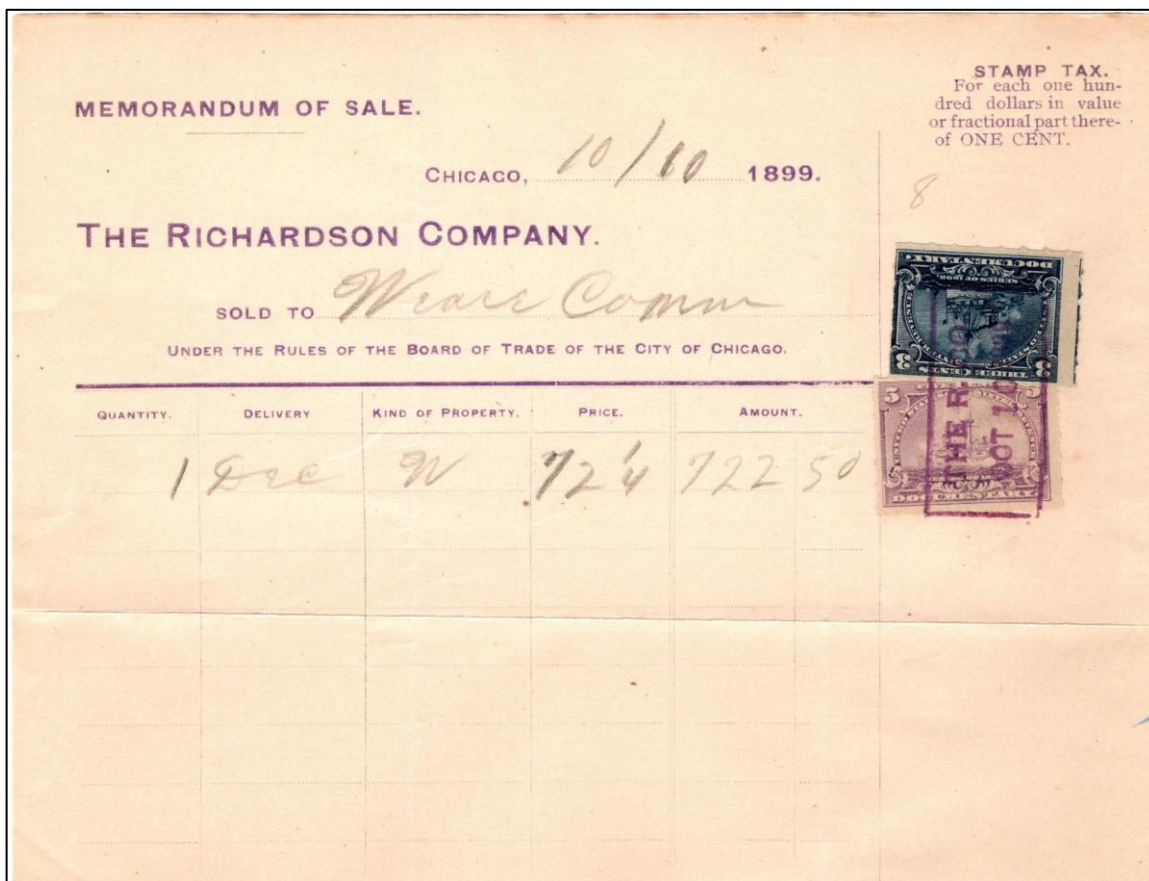 MEMORANDUM OF SALE.
STAMP TAX.
For each one hun-
dred dollars in value
or fractional part there-
of ONE CENT.
CHICAGO, 10/10 1899.
8
THE RICHARDSON COMPANY.
SOLD TO Weare Comm
UNDER THE RULES OF THE BOARD OF TRADE OF THE CITY OF CHICAGO.
QUANTITY. DELIVERY KIND OF PROPERTY. PRICE. AMOUNT.
1 Dec W 72 1/4 722 50
DOCUMENTARY.
SERIES OF 1898
3 THREE CENTS 3
5 5
THE R. CO
OCT 10